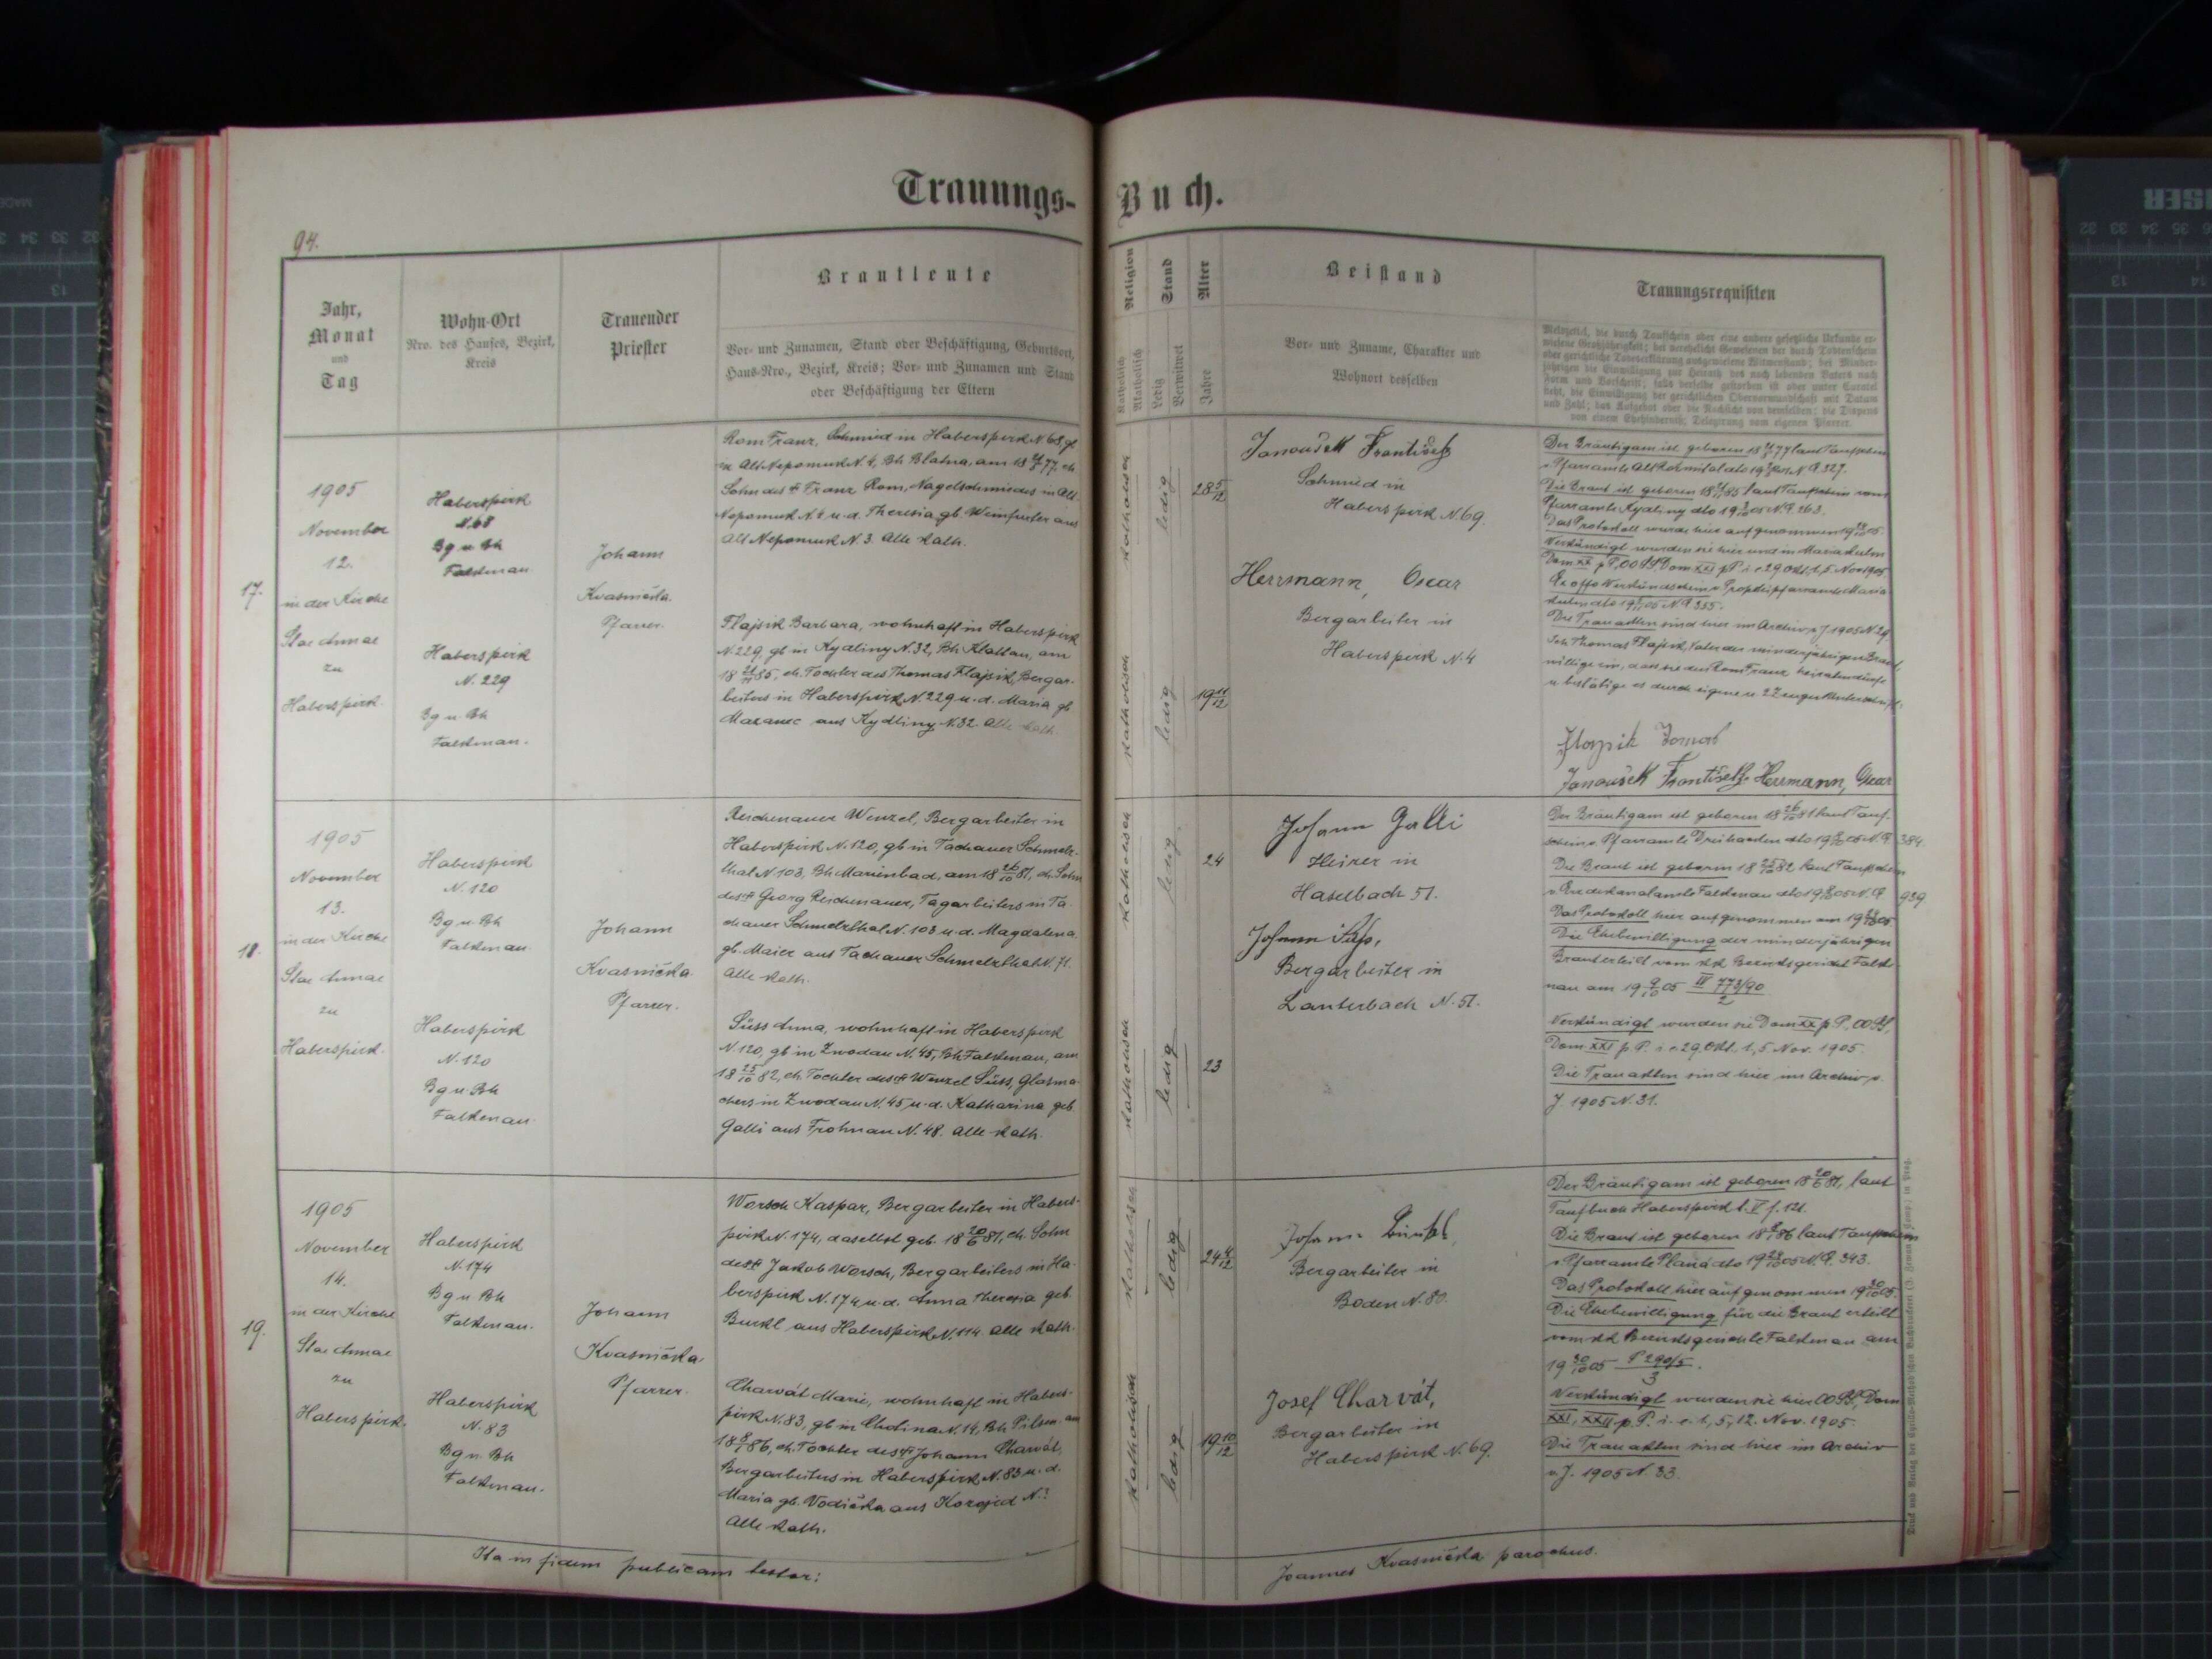 Trauungs-
94.
Jahr,
Monat
und
Tag
Wohn-Ort
Nro. des Hauses, Bezirk,
Kreis
Trauender
Priester
Brautleute
Vor- und Zunamen, Stand oder Beschäftigung, Geburtsort,
Haus-Nro., Bezirk, Kreis; Vor- und Zunamen und Stand
oder Beschäftigung der Eltern
17.
1905
November
12.
in der Kirche
Stae Annae
zu
Haberspirk.
Haberspirk
N. 68
Bg u. Bh
Falkenau
Haberspirk
N. 229
Bg u. Bh
Falkenau.
Johann
Kvasnička.
Pfarrer.
Rom Franz, Schmied in Haberspirk N. 68, gb
in Alt Nepomuk N. 4, Bh Blatna, am 77, eh.
Sohn des † Franz Rom, Nagelschmiedes in Alt-
Nepomuk N. 4 u. d. Theresia gb Weinfurter aus
Alt Nepomuk N. 3. Alle kath.
Flajsik Barbara, wohnhaft in Haberspirk
N. 229, gb in Kydliny N. 32, Bh Klattau, am
18 21/11 85, eh. Tochter des Thomas Flajsik, Bergar-
beiters in Haberspirk N. 229 u. d. Maria gb
aus Kydliny N. 32. Alle kath.
18.
1905
November
13.
in der Kirche
Stae Annae
zu
Haberspirk.
Haberspirk
N. 120
Bg u. Bh
Falkenau
Haberspirk
N. 120
Bg u. Bh
Falkenau.
Johann
Kvasnička
Pfarrer.
Reichenauer Wenzel, Bergarbeiter in
Haberspirk N. 120, gb in Tachauer Schmelz-
thal N. 103, Bh Marienbad, am 18 26/10 81, eh. Sohn
des † Georg Reichenauer, Tagarbeiters in Ta-
chauer Schmelzthal N. 103 u. d. Magdalena
gb. Maier aus Tachauer Schmelzthal N. 71.
Alle kath.
Süss Anna, wohnhaft in Haberspirk
N. 120, gb in Zwodau N. 45, Bh Falkenau, am
18 25/10 82, eh. Tochter des † Wenzel Süss, Glasma-
chers in Zwodau N. 45 u. d. Katharina geb.
Galli aus Frohnau N. 48. Alle kath.
19.
1905
November
14.
in der Kirche
Stae Annae
zu
Haberspirk.
Haberspirk
N. 174
Bg u Bh
Falkenau.
Haberspirk
N. 83
Bg u. Bh
Falkenau.
Johann
Kvasnička
Pfarrer.
Worsch Kaspar, Bergarbeiter in Habers-
pirk N. 174, daselbst geb. 18 20/6 81, eh. Sohn
des † Jakob Worsch, Bergarbeiters in Ha-
berspirk N. 174 u. d. Anna Theresia geb
Burkl aus Haberspirk N. 114. Alle kath.
Charvát Marie, wohnhaft in Habers-
pirk N. 83, gb in Chotina N. 14, Bh Pilsen am
18 8/1 86, eh. Tochter des † Johann Charvát,
Bergarbeiters in Haberspirk N. 83 u. d.
Maria gb. Vodička aus N. ?
Alle kath.
Ita in fidem publicam testor:
Buch.
Religion
Katholisch
Akatholisch
Stand
Ledig
Verwitwet
Alter
Jahre
Beistand
Vor- und Zuname, Charakter und
Wohnort desselben
Trauungsrequisiten
Meldzettel, die durch Taufschein oder eine andere gesetzliche Urkunde er-
wiesene Großjährigkeit; bei verehelicht Gewesenen der durch Todtenschein
oder gerichtliche Todeserklärung ausgewiesene Witwenstand; bei Minder-
jährigen die Einwilligung zur Heirath des noch lebenden Vaters nach
Form und Vorschrift; falls derselbe gestorben ist oder unter Curatel
steht, die Einwilligung der gerichtlichen Obervormundschaft mit Datum
und Zahl; das Aufgebot oder die Nachsicht von demselben; die Dispens
von einem Ehehinderniß; Delegirung vom eigenen Pfarrer.
katholisch
ledig
28 5/12
katholisch
ledig
19 11/12
Janoušek František
Schmied in
Haberspirk N. 69.
Herrmann, Oscar
Bergarbeiter in
Haberspirk N. 4
Der Bräutigam ist geboren 77 laut Taufschein
v. Pfarramte Alt Rožmital N. E. 327.
Die Braut ist geboren 18 21/11 85 laut Taufschein vom
Pfarramte Kydliny N. E. 263.
Das Protokoll wurde hier aufgenommen
Verkündigt wurden sie hier und in Maria Kulm
Dom XX p P, OO SS, Dom XXI p P. i. e 29 Okt, 1, 5 Nov 1905.
Ex offo Verkündschein v. Propsteipfarramte Maria
Kulm N. E. 355.
Die Trauakten sind hier im Archiv v. J. 1905 N. 29
Ich Thomas Flajsik, Vater der minderjährigen Braut,
willige ein, dass sie den Rom Franz heiraten dürfe
u. bestätige es durch eigene u. 2 Zeugen Unterschrift:
Flajsik Tomas
Janoušek František Herrmann, Oscar
katholisch
ledig
24
katholisch
ledig
23
Johann Galli
Heizer in
Haselbach 51.
Johann Süss,
Bergarbeiter in
Lauterbach N. 51.
Der Bräutigam ist geboren 18 26/10 81 laut Tauf-
schein v. Pfarramte Dreihacken N. E. 384.
Die Braut ist geboren 18 25/10 82 laut Taufschein
v. Erzdekanalamte Falkenau N. E. 939
Das Protokoll hier aufgenommen am
Die Ehebewilligung der minderjährigen
Braut erteilt vom kk Bezirksgericht Falke-
nau am 19 9/10 05 IV 773/90
2
Verkündigt wurden sie Dom XX p P. OO SS,
Dom. XXI p P. i. e. 29. Okt. 1, 5 Nov. 1905.
Die Trauakten sind hier im Archiv v.
J. 1905 N. 31.
katholisch
ledig
24 4/12
katholisch
ledig
19 10/12
Johann
Bergarbeiter in
Boden N. 80.
Josef Charvát,
Bergarbeiter in
Haberspirk N. 69.
Der Bräutigam ist geboren 18 20/6 81, laut
Taufbuch Haberspirk t. V f. 121.
Die Braut ist geboren 18 8/1 86 laut Taufschein
v. Pfarramte Planá N. E. 343.
Das Protokoll hier aufgenommen
Die Ehebewilligung für die Braut erteilt
vom kk Bezirksgerichte Falkenau am
19 30/10 05 P 290/5.
3
Verkündigt wurden sie hier OO SS, Dom
XXI, XXII p. P. i. e. 1, 5, 12. Nov. 1905.
Die Trauakten sind hier im Archiv
v. J. 1905 N. 33.
Joannes Kvasnička parochus.